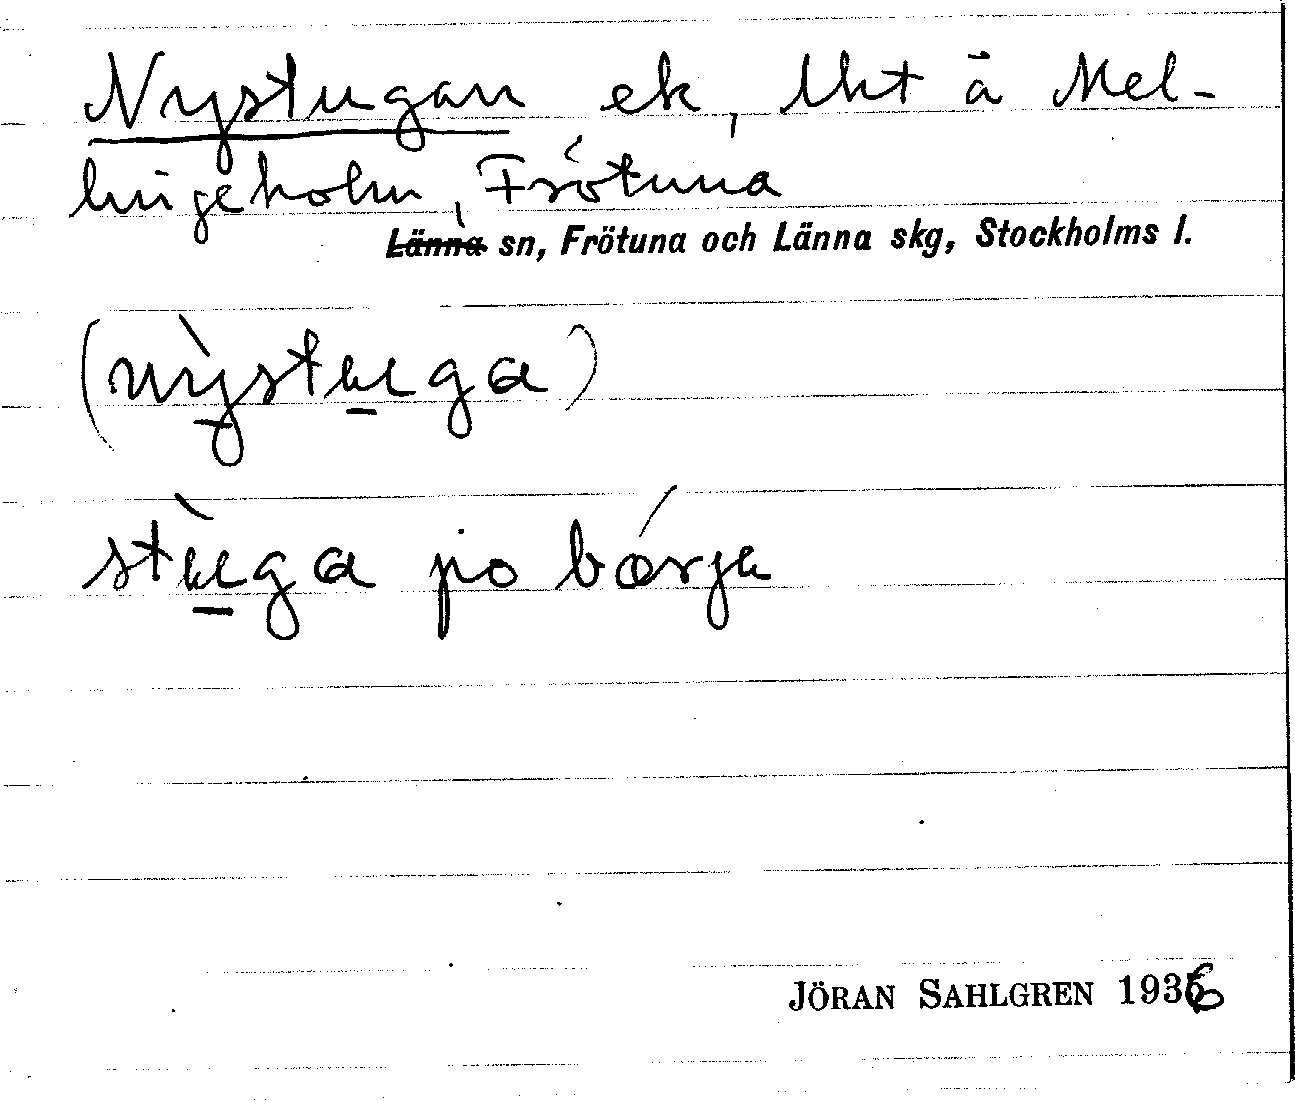 Nystugan ek, lht å Mel-
lingeholm, Frötuna
Länna sn, Frötuna och Länna skg, Stockholms l.
(nỳstuga)
stùga po bǿrje
JÖRAN SAHLGREN 1936